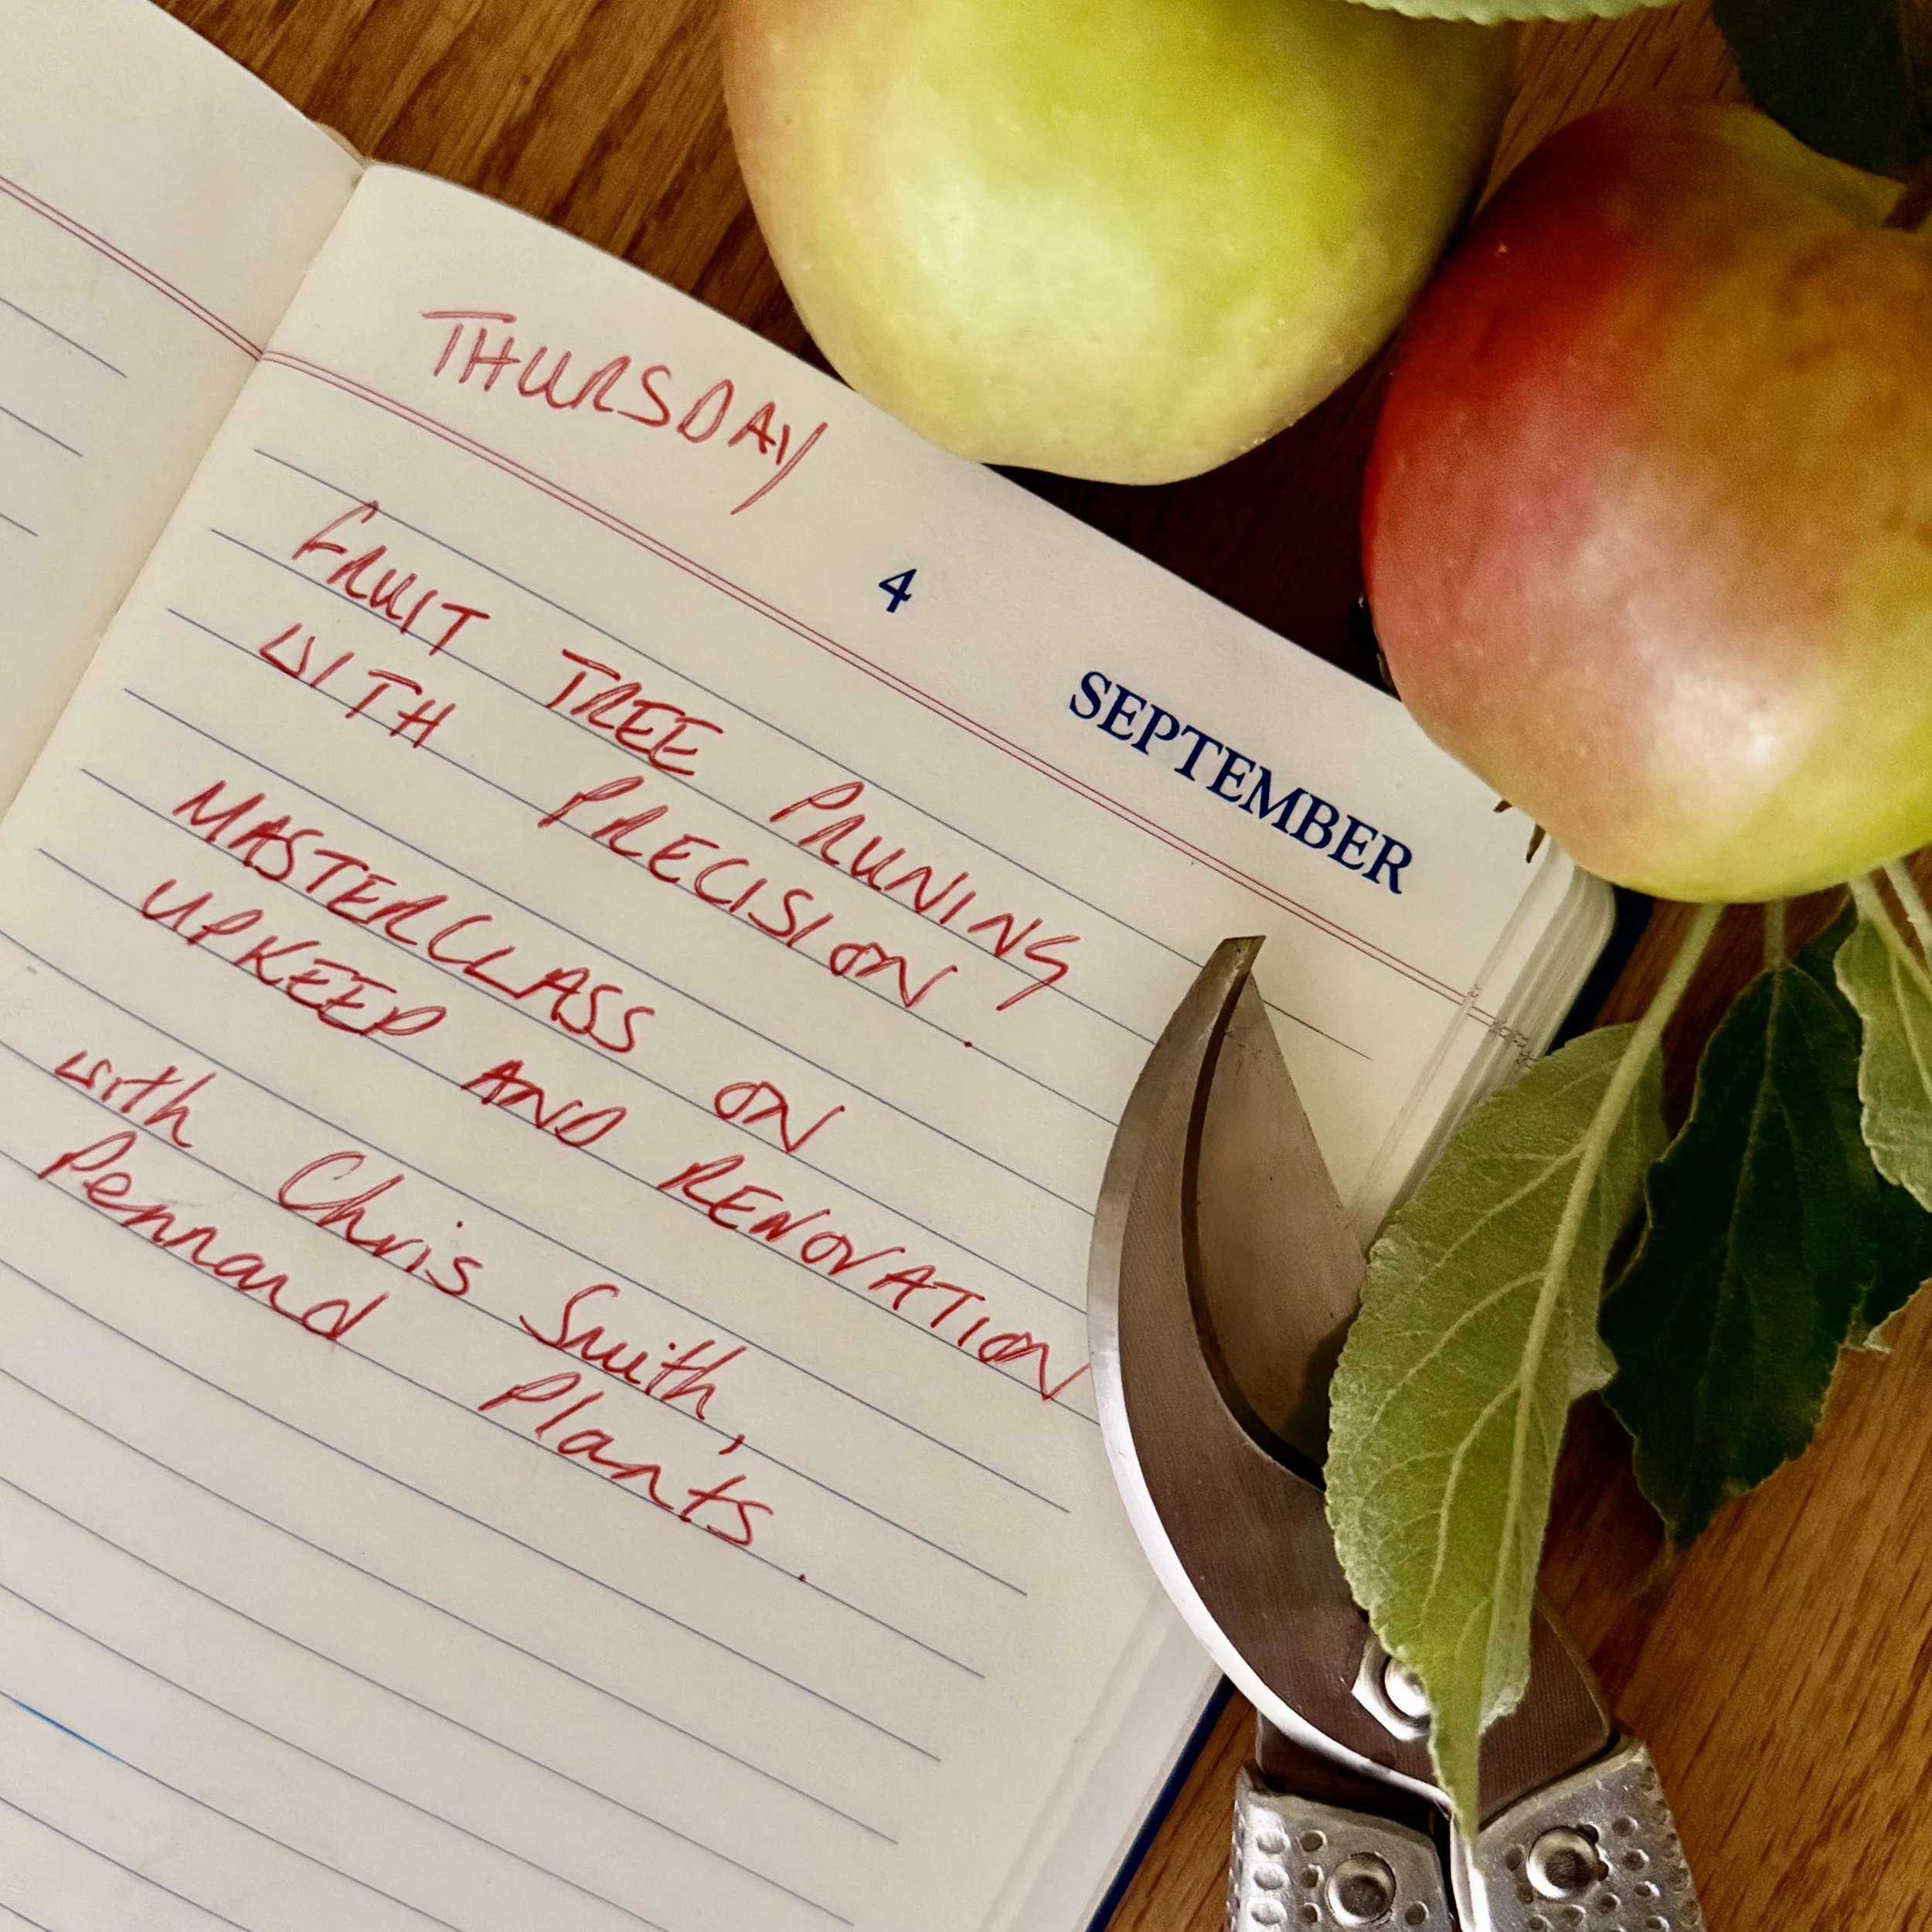 THURSDAY
4
SEPTEMBER
FRUIT TREE PRUNING
WITH PRECISION.
MASTERCLASS ON
UPKEEP AND RENOVATION
with Chris Smith,
Pennard Plants.